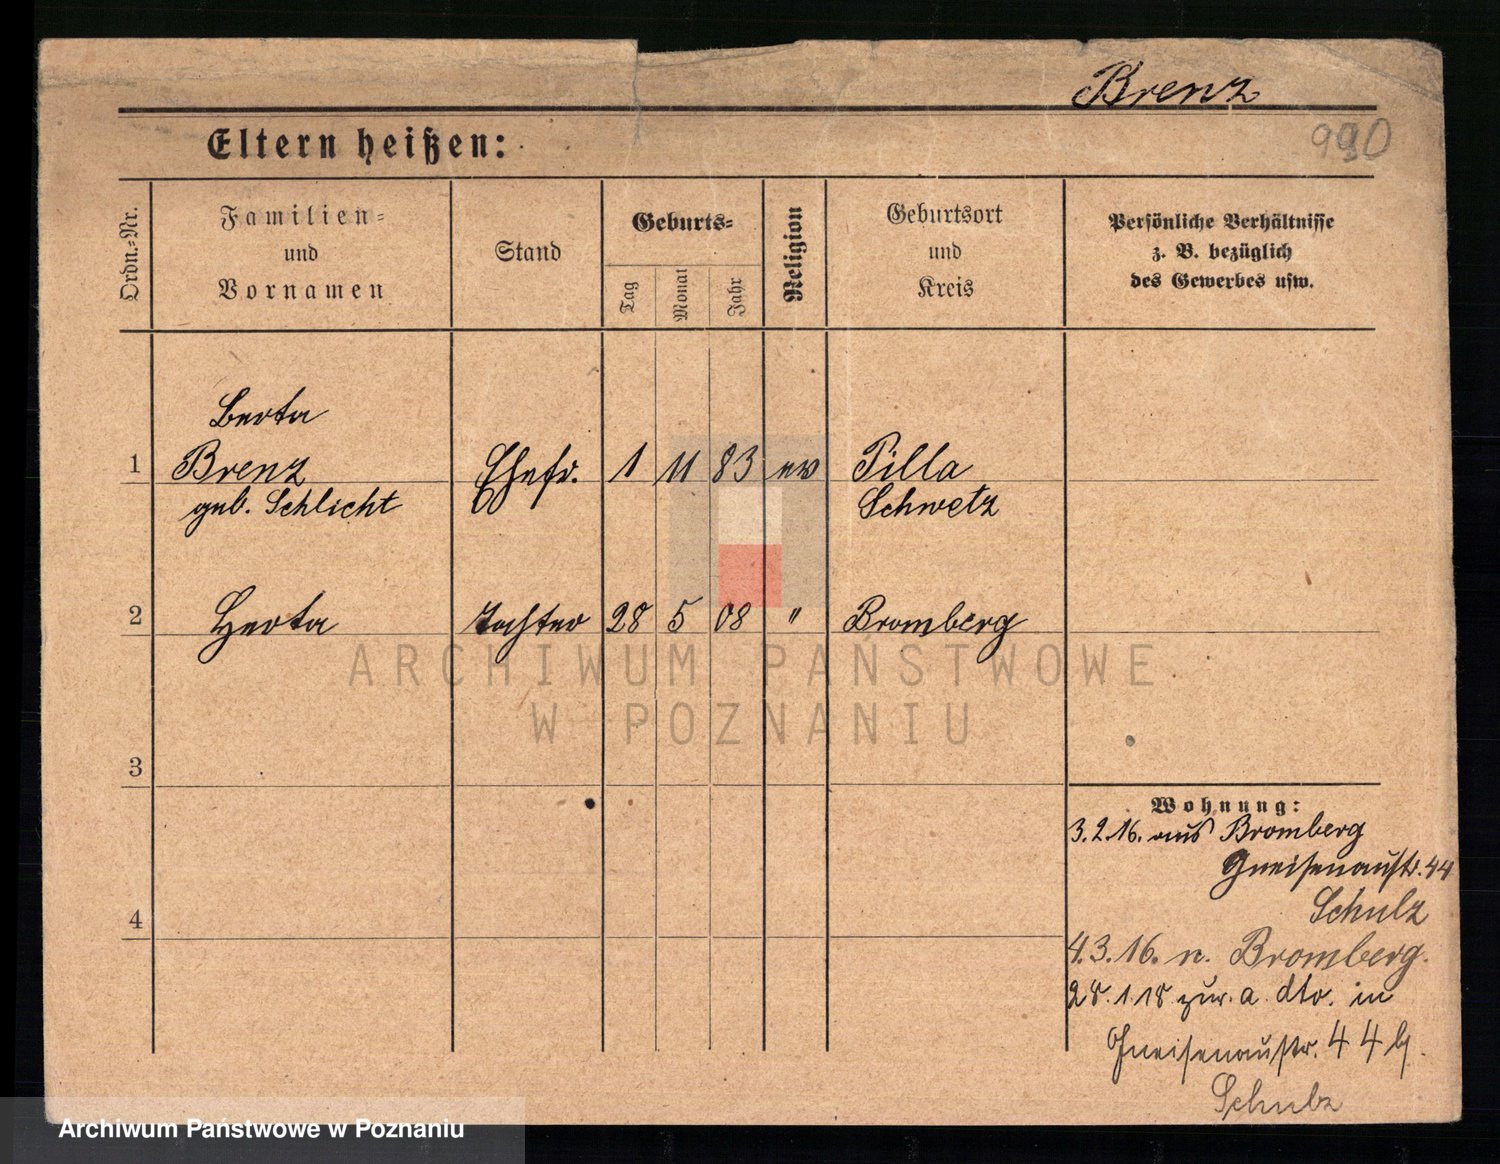 Brenz
990
Eltern heißen:
Ordn.-Nr.
Familien-
und
Vornamen
Stand
Geburts-
Tag
Monat
Jahr
Religion
Geburtsort
und
Kreis
Persönliche Verhältnisse
z. B. bezüglich
des Gewerbes usw.
Berta
1 Brenz Ehefr. 1 11 83 ev Pilla
geb. Schlicht Schwetz
2 Herta Tochter 28 5 08 " Bromberg
ARCHIWUM PAŃSTWOWE
W POZNANIU
3
Wohnung:
3.2.16. aus Bromberg
Gneisenaustr. 44
Schulz
4
4.3.16. n. Bromberg.
28.1.18 zur. a. dto. in
Gneisenaustr. 44 b.
Schulz
Archiwum Państwowe w Poznaniu